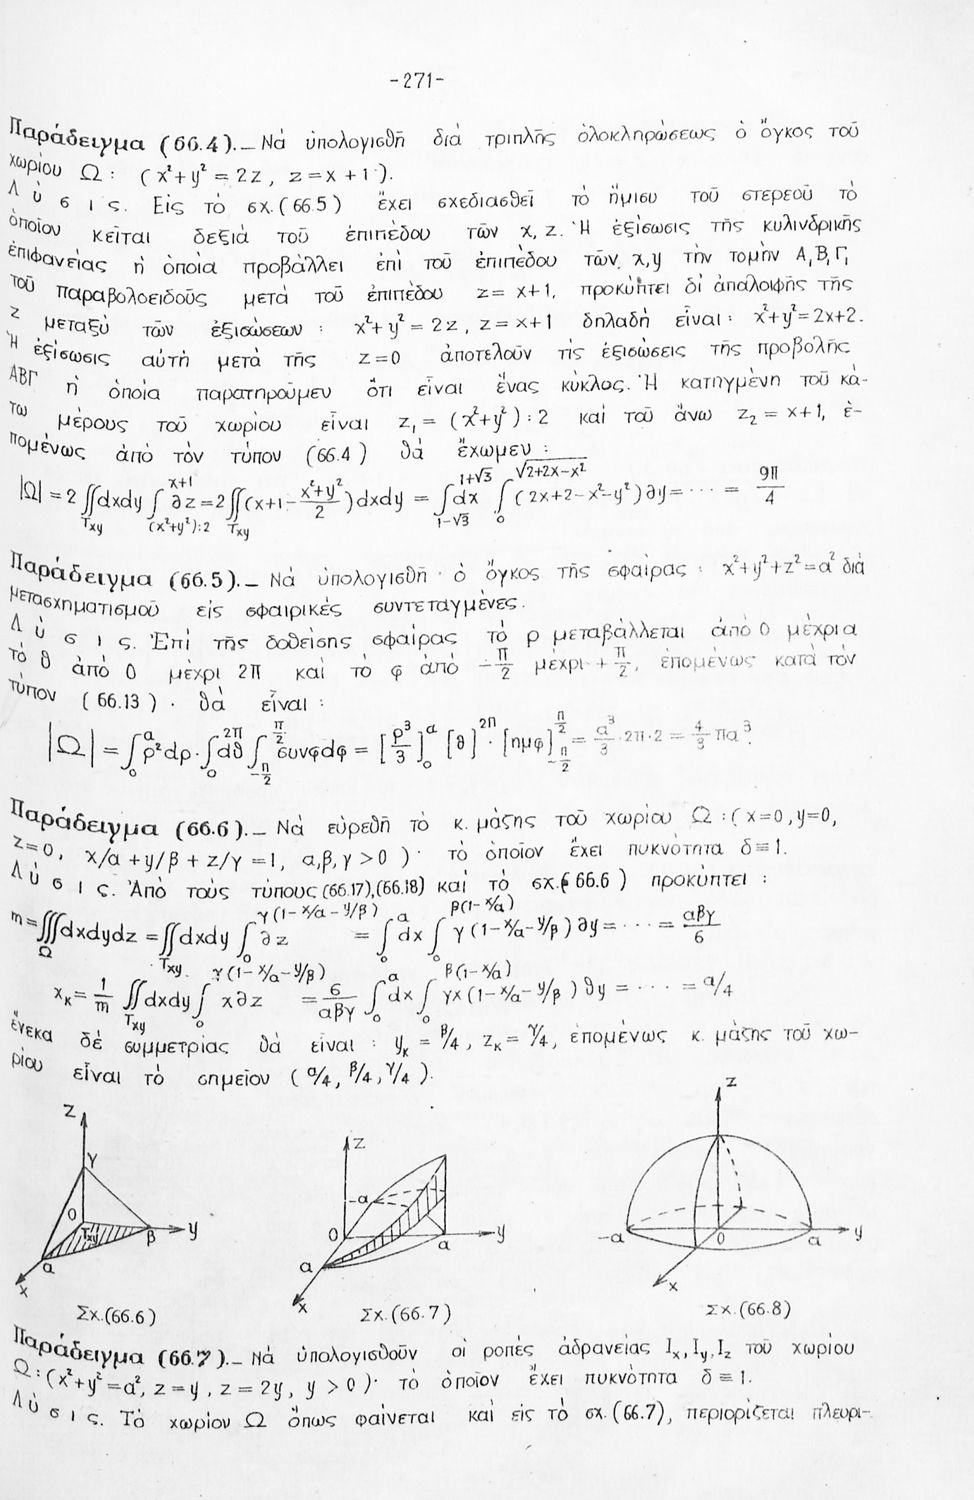 -271-
Παράδειγμα (66.4)._ Νά ὑπολογισθῆ διά τριπλῆς ὁλοκληρώσεως ὁ ὄγκος τοῦ
χωρίου Ω : (x²+y² = 2z , z = x + 1 ).
Λ ύ σ ι ς. Εἰς τό σχ.(66.5) ἔχει σχεδιασθεῖ τό ἥμισυ τοῦ στερεοῦ τό
ὁποῖον κεῖται δεξιά τοῦ ἐπιπέδου τῶν x, z. Ἡ ἐξίσωσις τῆς κυλινδρικῆς
ἐπιφανείας ἡ ὁποία προβάλλει ἐπί τοῦ ἐπιπέδου τῶν x,y τήν τομήν Α₁Β₁Γ₁
τοῦ παραβολοειδοῦς μετά τοῦ ἐπιπέδου z = x+1, προκύπτει δι ἀπαλοιφῆς τῆς
z μεταξύ τῶν ἐξισώσεων : x²+y² = 2z , z = x+1 δηλαδή εἶναι : x²+y²=2x+2.
Ἡ ἐξίσωσις αὐτή μετά τῆς z=0 ἀποτελοῦν τίς ἐξισώσεις τῆς προβολῆς
ΑΒΓ ἡ ὁποία παρατηροῦμεν ὅτι εἶναι ἕνας κύκλος. Ἡ κατηγμένη τοῦ κά-
τω μέρους τοῦ χωρίου εἶναι z₁ = (x²+y²):2 καί τοῦ ἄνω z₂ = x+1, ἑ-
πομένως ἀπό τόν τύπον (66.4) θά ἔχωμεν :
|Ω| = 2 ∬_{Txy} dxdy ∫_{(x²+y²):2}^{x+1} ∂z = 2 ∬_{Txy} (x+1 - (x²+y²)/2) dxdy = ∫_{1-√3}^{1+√3} dx ∫_0^{√(2+2x-x²)} (2x+2-x²-y²) ∂y = ··· = 9π/4
Παράδειγμα (66.5)._ Νά ὑπολογισθῆ · ὁ ὄγκος τῆς σφαίρας : x²+y²+z²=a² διά
μετασχηματισμοῦ εἰς σφαιρικές συντεταγμένες.
Λ ύ σ ι ς. Ἐπί τῆς δοθείσης σφαίρας τό ρ μεταβάλλεται ἀπό 0 μέχρι a
τό θ ἀπό 0 μέχρι 2π καί τό φ ἀπό -π/2 μέχρι +π/2, ἑπομένως κατά τόν
τύπον (66.13) · θά εἶναι :
|Ω| = ∫_0^a ρ²dρ · ∫_0^{2π} dθ ∫_{-π/2}^{π/2} συνφdφ = [ρ³/3]_0^a [θ]^{2π} · [ημφ]_{-π/2}^{π/2} = a³/3 · 2π · 2 = 4/3 πa³.
Παράδειγμα (66.6)._ Νά εὑρεθῆ τό κ. μάζης τοῦ χωρίου Ω : ( x=0, y=0,
z=0, x/α + y/β + z/γ = 1, α,β,γ > 0 ) · τό ὁποῖον ἔχει πυκνότητα δ ≡ 1.
Λ ύ σ ι ς. Ἀπό τούς τύπους (66.17),(66.18) καί τό σχ.(66.6) προκύπτει :
m = ∭_Ω dxdydz = ∬_{Txy} dxdy ∫_0^{γ(1-x/α-y/β)} ∂z = ∫_0^α dx ∫_0^{β(1-x/α)} γ(1-x/α-y/β) ∂y = ··· = αβγ/6
x_κ = 1/m ∬_{Txy} dxdy ∫_0^{γ(1-x/α-y/β)} x∂z = 6/αβγ ∫_0^α dx ∫_0^{β(1-x/α)} γx(1-x/α-y/β) ∂y = ··· = α/4
ἕνεκα δέ συμμετρίας θά εἶναι : y_κ = β/4, z_κ = γ/4, ἑπομένως κ. μάζης τοῦ χω-
ρίου εἶναι τό σημεῖον ( α/4, β/4, γ/4 ).
z γ O Txy β y α x
z -α O α y α x
z -α 0 α y x
Σχ.(66.6) Σχ.(66.7) Σχ.(66.8)
Παράδειγμα (66.7)._ Νά ὑπολογισθοῦν οἱ ροπές ἀδρανείας Ix, Iy, Iz τοῦ χωρίου
Ω : (x²+y²=a², z=y, z=2y, y>0) · τό ὁποῖον ἔχει πυκνότητα δ ≡ 1.
Λ ύ σ ι ς. Τό χωρίον Ω ὅπως φαίνεται καί εἰς τό σχ.(66.7), περιορίζεται πλευρι-